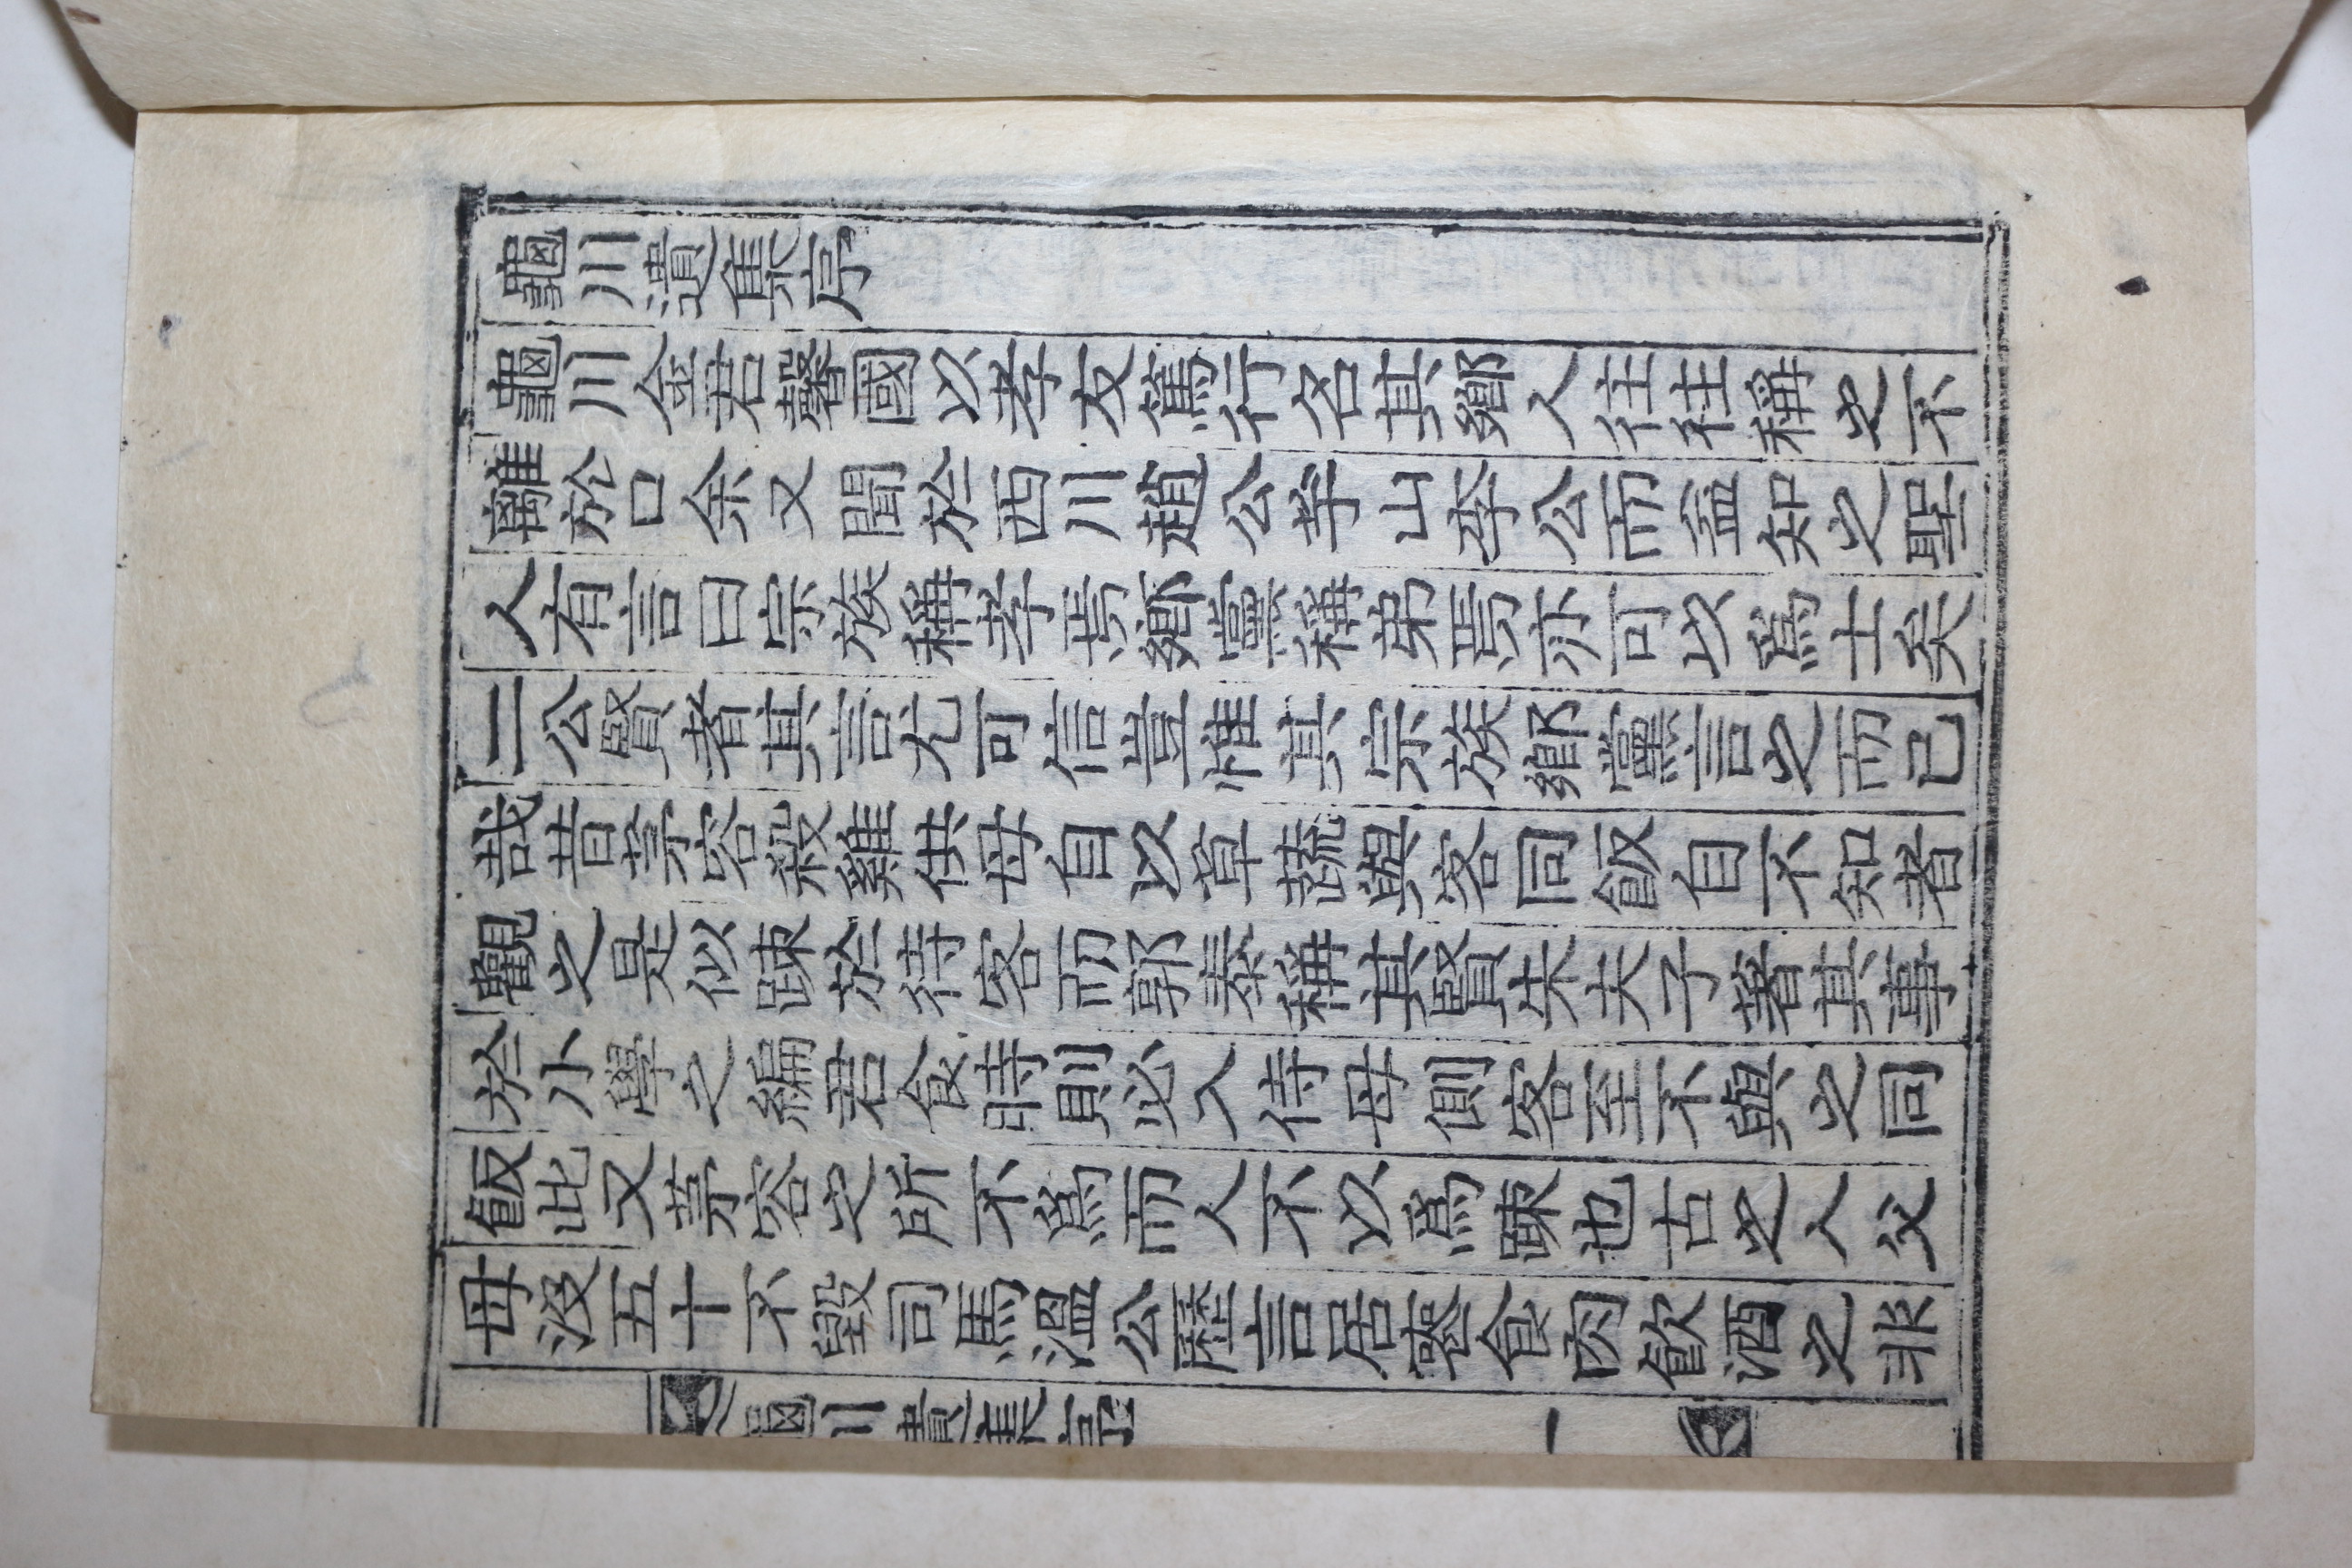 龜川遺集序
龜川金君馨國以孝友篤行名其鄕人往往稱之不
離於口余又聞於西川趙公芋山李公而益知之聖
人有言曰宗族稱孝焉鄕黨稱弟焉亦可以爲士矣
二公賢者其言尤可信豈惟其宗族鄕黨言之而已
哉昔茅容殺雞供母自以草蔬與客同飯自不知者
觀之是似踈於待客而郭泰稱其賢朱夫子著其事
於小學之編君食時則必入侍母側客至不與之同
飯此又茅容之所不爲而人不以爲踈也古之人父
母沒五十不毀司馬溫公歷言居喪食肉飮酒之非
龜川遺集序 一